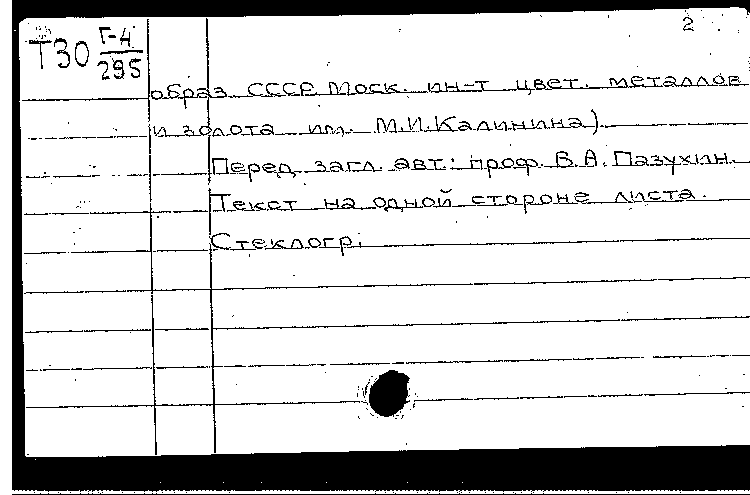 2
Т30 Г-4
295
образ. СССР. Моск. ин-т цвет. металлов
и золота им. М.И.Калинина).
Перед загл. авт.: проф. В.А. Пазухин.
Текст на одной стороне листа.
Стеклогр.